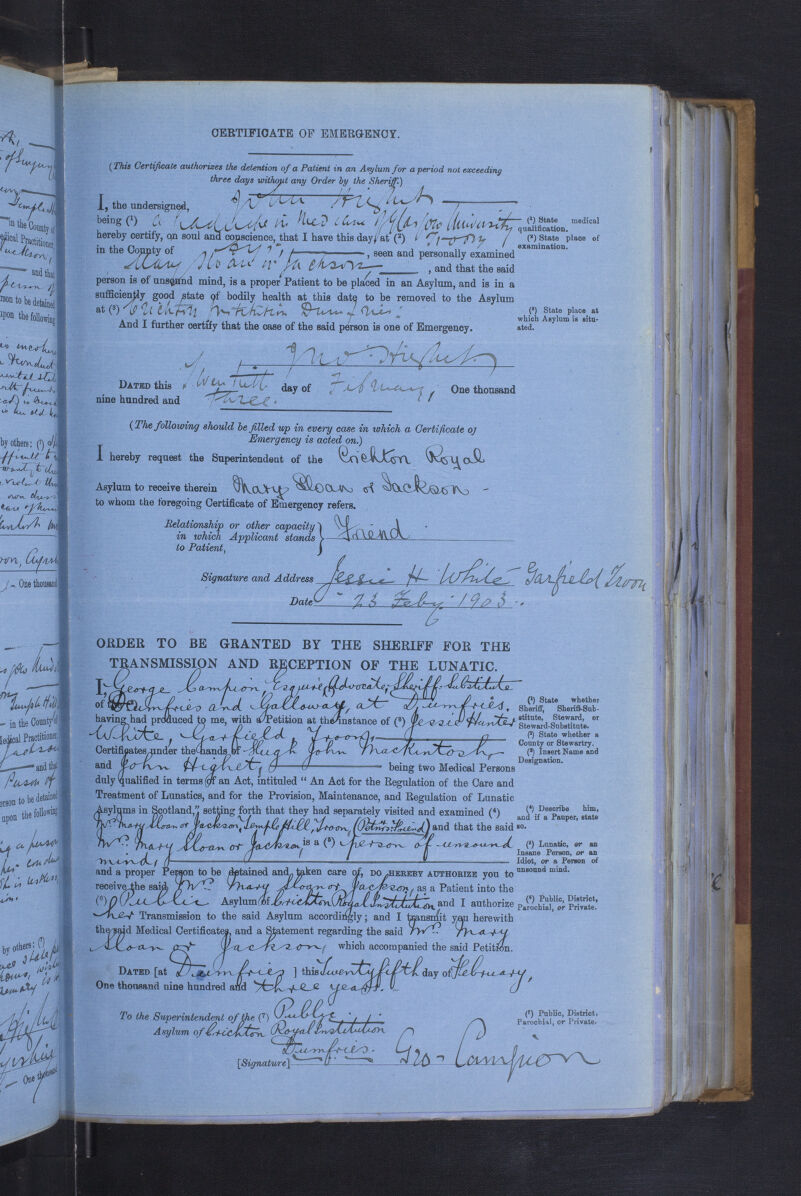 CERTIFICATE OF EMERGENCY.
(This Certificate authorizes the detention of a Patient in an Asylum for a period not exceeding
three days without any Order by the Sheriff.)
I, the undersigned, John Highet
being (¹) a Graduate in Medicine of Glasgow University
(¹) State medical
qualification.
hereby certify, on soul and conscience, that I have this day, at (²) Troon
(²) State place of
examination.
in the County of Ayr, seen and personally examined
Mary Sloan or Jackson, and that the said
person is of unsound mind, is a proper Patient to be placed in an Asylum, and is in a
sufficiently good state of bodily health at this date to be removed to the Asylum
at (³) Crichton Institution Dumfries.
(³) State place at
which Asylum is situ-
ated.
And I further certify that the case of the said person is one of Emergency.
Jno. Highet
DATED this Twentieth day of February, One thousand
nine hundred and three.
(The following should be filled up in every case in which a Certificate of
Emergency is acted on.)
I hereby request the Superintendent of the Crichton Royal
Asylum to receive therein Mary Sloan or Jackson -
to whom the foregoing Certificate of Emergency refers.
Relationship or other capacity
in which Applicant stands
to Patient, Friend
Signature and Address Jessie H White Garfield Troon
Date 23 Feby 1903.
ORDER TO BE GRANTED BY THE SHERIFF FOR THE
TRANSMISSION AND RECEPTION OF THE LUNATIC.
I, George Campion, Esquire, Advocate, Sheriff-Substitute
of Dumfries and Galloway, at Dumfries,
(¹) State whether
Sheriff, Sheriff-Sub-
stitute, Steward, or
Steward-Substitute.
having had produced to me, with a Petition at the instance of (²) Jessie Hunter
White, Garfield, Troon,
(²) State whether a
County or Stewartry.
Certificates under the hands of Hugh John Mackintosh
(³) Insert Name and
Designation.
and John Highet, being two Medical Persons
duly qualified in terms of an Act, intituled "An Act for the Regulation of the Care and
Treatment of Lunatics, and for the Provision, Maintenance, and Regulation of Lunatic
Asylums in Scotland," setting forth that they had separately visited and examined (⁴)
(⁴) Describe him,
and if a Pauper, state
so.
Mrs. Mary Sloan or Jackson, Temple Hill, Troon, (Petnrs. Friend) and that the said
Mrs. Mary Sloan or Jackson, is a (⁵) person of unsound
mind,
(⁵) Lunatic, or an
Insane Person, or an
Idiot, or a Person of
unsound mind.
and a proper Person to be detained and taken care of, DO HEREBY AUTHORIZE you to
receive the said Mrs. Mary Sloan or Jackson, as a Patient into the
(⁶) Public Asylum of Crichton Royal Institution, and I authorize
(⁶) Public, District,
Parochial, or Private.
her Transmission to the said Asylum accordingly; and I transmit you herewith
the said Medical Certificates, and a Statement regarding the said Mrs. Mary
Sloan or Jackson, which accompanied the said Petition.
DATED [at Dumfries ] this Twenty fifth day of February,
One thousand nine hundred and three years.
To the Superintendent of the (⁷) Public
(⁷) Public, District,
Parochial, or Private.
Asylum of Crichton Royal Institution
Dumfries.
[Signature] Geo- Campion